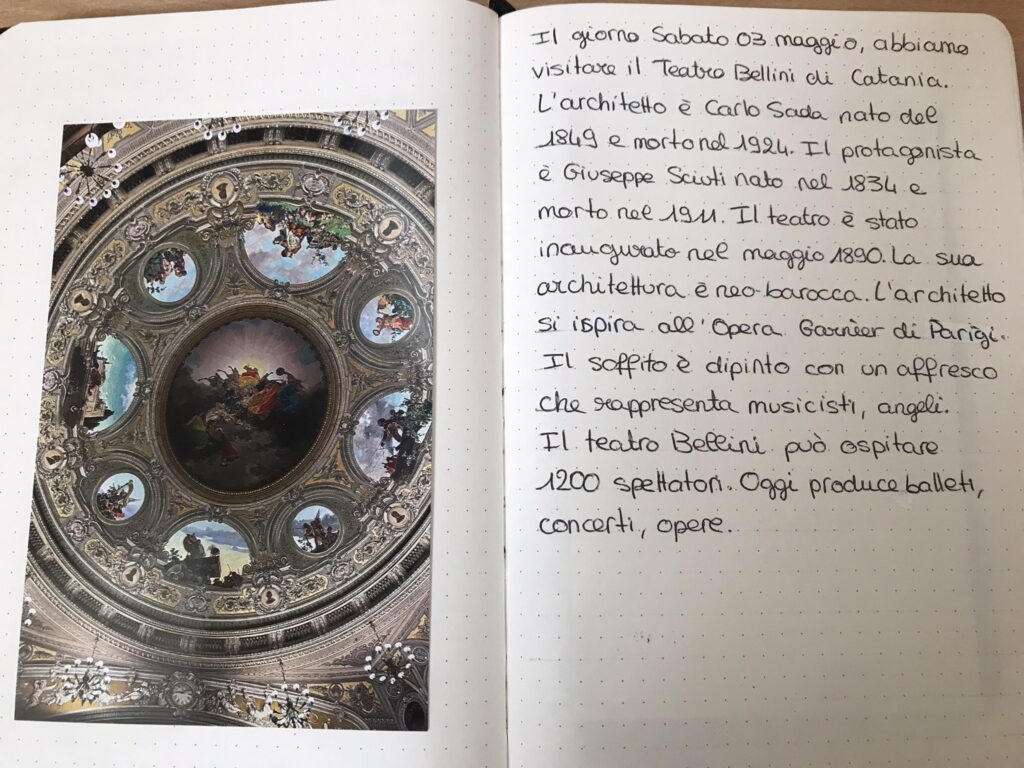 Il giorno Sabato 03 maggio, abbiamo
visitare il Teatro Bellini di Catania.
L'architetto è Carlo Sada nato del
1849 e morto nel 1924. Il protagonista
è Giuseppe Sciuti nato nel 1834 e
morto nel 1911. Il teatro è stato
inaugurato nel maggio 1890. La sua
architettura è neo-barocca. L'architetto
si ispira all'Opera Garnier di Parigi.
Il soffito è dipinto con un affresco
che rappresenta musicisti, angeli.
Il teatro Bellini può ospitare
1200 spettatori. Oggi produce balleti,
concerti, opere.